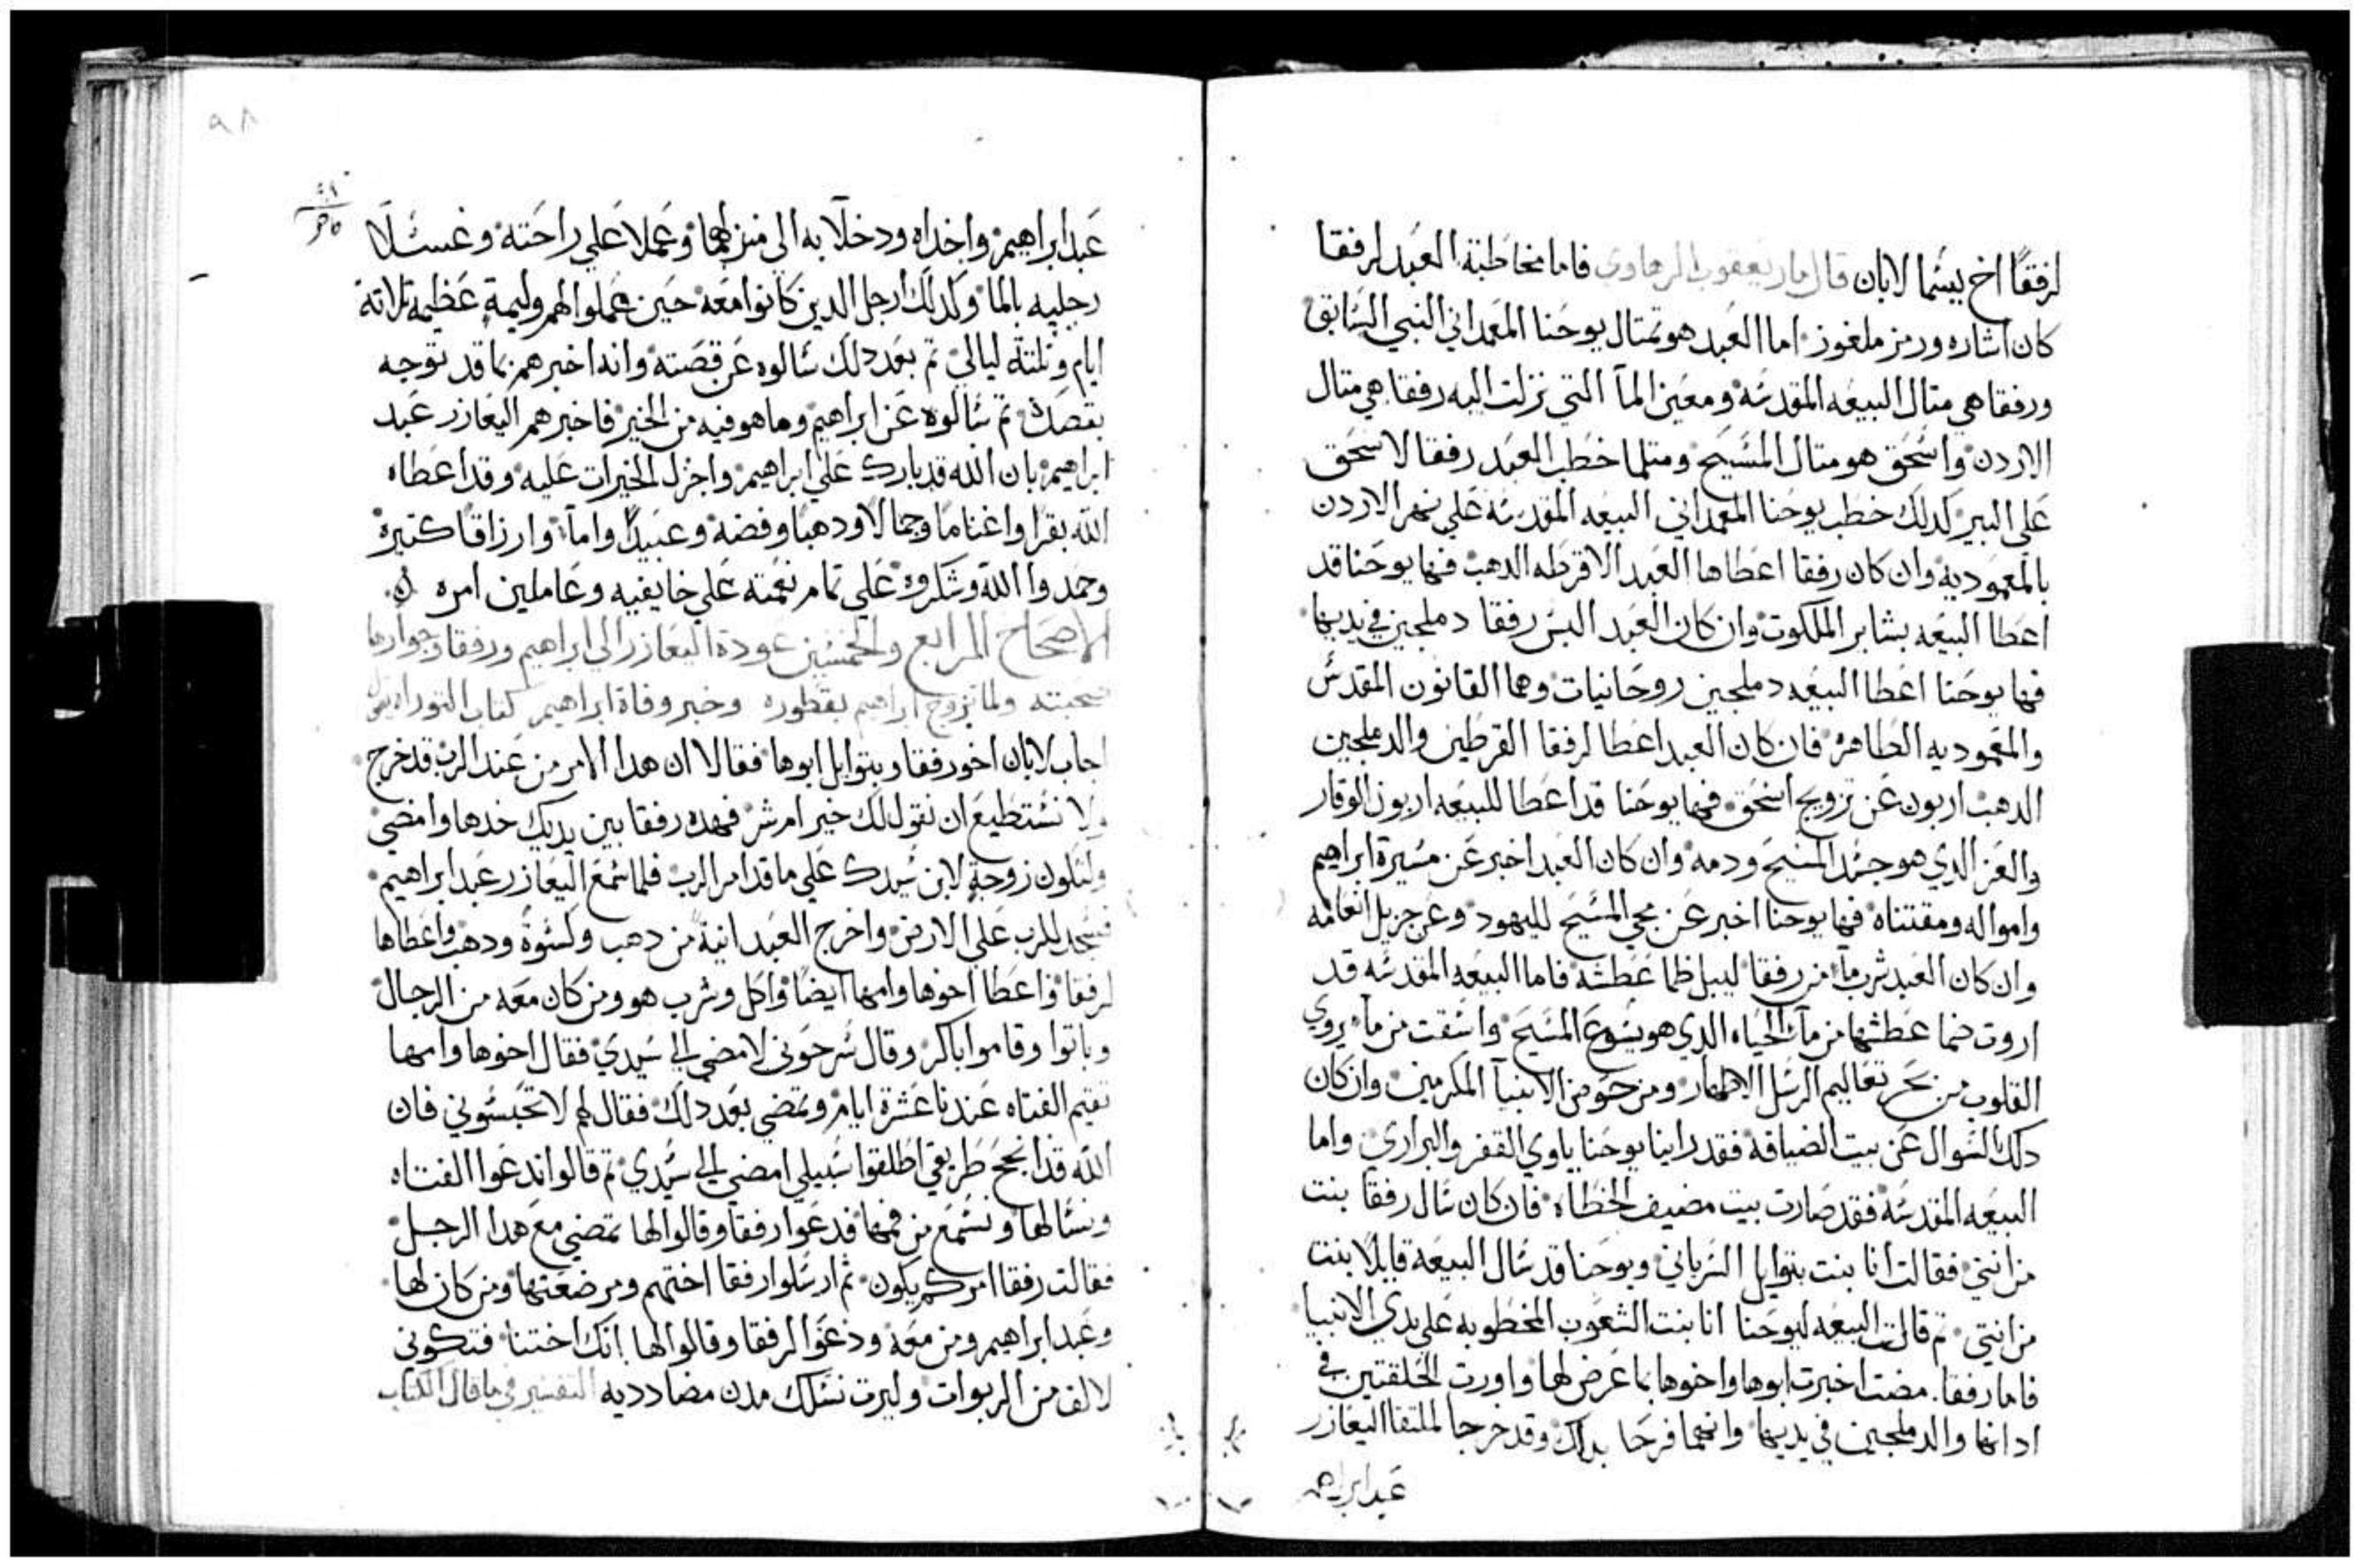 لرفقًا اخ يسما لابان قال مار يعقوب الرهاوي فاما مخاطبة العبد لرفقا
كان اشاره ورمز ملغوز اما العبد هو تمتال يوحنا المعمداني النبي السابق
ورفقا هي متال البيعه المقدسه ومعين المآ التي نزلت اليه رفقا هي متال
الاردن واسحق هو متال المسيح ومتلما خطب العبد رفقا لاسحق
علي البير كدلك خطب يوحنا المعمداني البيعه المقدسه علي نهر الاردن
بالمعموديه وان كان رفقا اعطاها العبد الاقرطه الدهب فها يوحنا قد
اعطا البيعه بشاير الملكوت وان كان العبد البس رفقا دملجين في يديها
فها يوحنا اعطا البيعه دملجين روحانيات وهما القانون المقدس
والمعموديه الطاهره فان كان العبد اعطا لرفقا القرطين والدملجين
الدهب اربون عن تزويج اسحق فها يوحنا قد اعطا للبيعه اربون الوقار
والعز الدي هو جسد المسيح ودمه وان كان العبد اخبر عن مسيرة ابراهيم
وامواله ومقتناه فها يوحنا اخبر عن مجي المسيح لليهود وعن جزيل انعامه
وان كان العبد شرب مآ من رفقا ليبل ظما عطشه فاما البيعه المقدسه قد
اروت ضما عطشها من مآ الحياه الدي هو يسوع المسيح واسقت من مآ يروي
القلوب من بحر تعاليم الرسل الاطهار ومن حوض الانبيآ المكرمين وان كان
دلك السوال عن بيت الضيافه فقد راينا يوحنا ياوي القفر والبراري واما
البيعه المقدسه فقد صارت بيت مضيف الخطاه فان كان سال رفقا بنت
من انتي فقالت انا بنت بتوايل السرياني ويوحنا قد سال البيعه قايلا بنت
من انتي تم قالت البيعه ليوحنا انا بنت الشعوب المخطوبه علي يدي الانبيا
فاما رفقا مضت اخبرت ابوها واخوها بما عرض لها واورت الحلقتين في
ادانها والدملجين في يديها وانهما فرحا بدلك وقد خرجا لملتقا اليعازر
عبد ابراهيم
٩٨
عبد ابراهيم واخداه ودخلا به الي منزلهما وعملا علي راحته وغسلا
رجليه بالما وكدلك ارجل الدين كانوا معه حين عملوا لهم وليمة عظيمه تلاتة
ايام وتلتة ليالي تم بعد دلك سالوه عن قصته واندا خبرهم بما قد توجه
بقصك تم سالوه عن ابراهيم وما هو فيه من الخير فاخبرهم اليعازر عبد
ابراهيم بان الله قد بارك علي ابراهيم واجزل الخيرات عليه وقد اعطاه
الله بقرا واغناما وجمالا ودهبا وفضه وعبيدًا واماآ وارزاقا كتيره
وحمدوا الله وشكروه علي تمام نعمته علي خايفيه وعاملين امره
الاصحاح الرابع والخمسين عودة اليعازر الي ابراهيم ورفقا وجوارها
صحبته ولما تزوج ابراهيم بقطوره وخبر وفاة ابراهيم كتاب التوراه
اجاب لابان اخو رفقا وبتوايل ابوها فقالا ان هدا الامر من عند الرب قد خرج
ولا نستطيع ان نقول لك خير ام شر فهده رفقا بين يديك خدها وامضي
ولتكون زوجة لابن سيدك علي ما قد امر الرب فلما سمع اليعازر عبد ابراهيم
فسجد للرب علي الارض واخرج العبد انية من دهب وكسوة ودهب واعطاها
لرفقا واعطا اخوها وامها ايضا واكل وشرب هو ومن كان معه من الرجال
وباتوا وقاموا باكر وقال سرحوني لامضي الي سيدي فقال اخوها وامها
تقيم الفتاه عندنا عشرة ايام وتمضي بعد دلك فقال لهم لا تحبسوني فان
الله قد انجح طريقي اطلقوا سبيلي امضي الي سيدي تم قالوا ندعوا الفتاه
ونسالها ونسمع من فمها فدعوا رفقا وقالوا لها تمضي مع هدا الرجل
فقالت رفقا امركم يكون ثم ارسلوا رفقا اختهم ومرضعتها ومن كان لها
وعبد ابراهيم ومن معه ودعوا لرفقا وقالوا لها انك اختنا فتكوني
لالف من الربوات وليرت نسلك مدن مضادديه التفسير في ما قال الكتاب